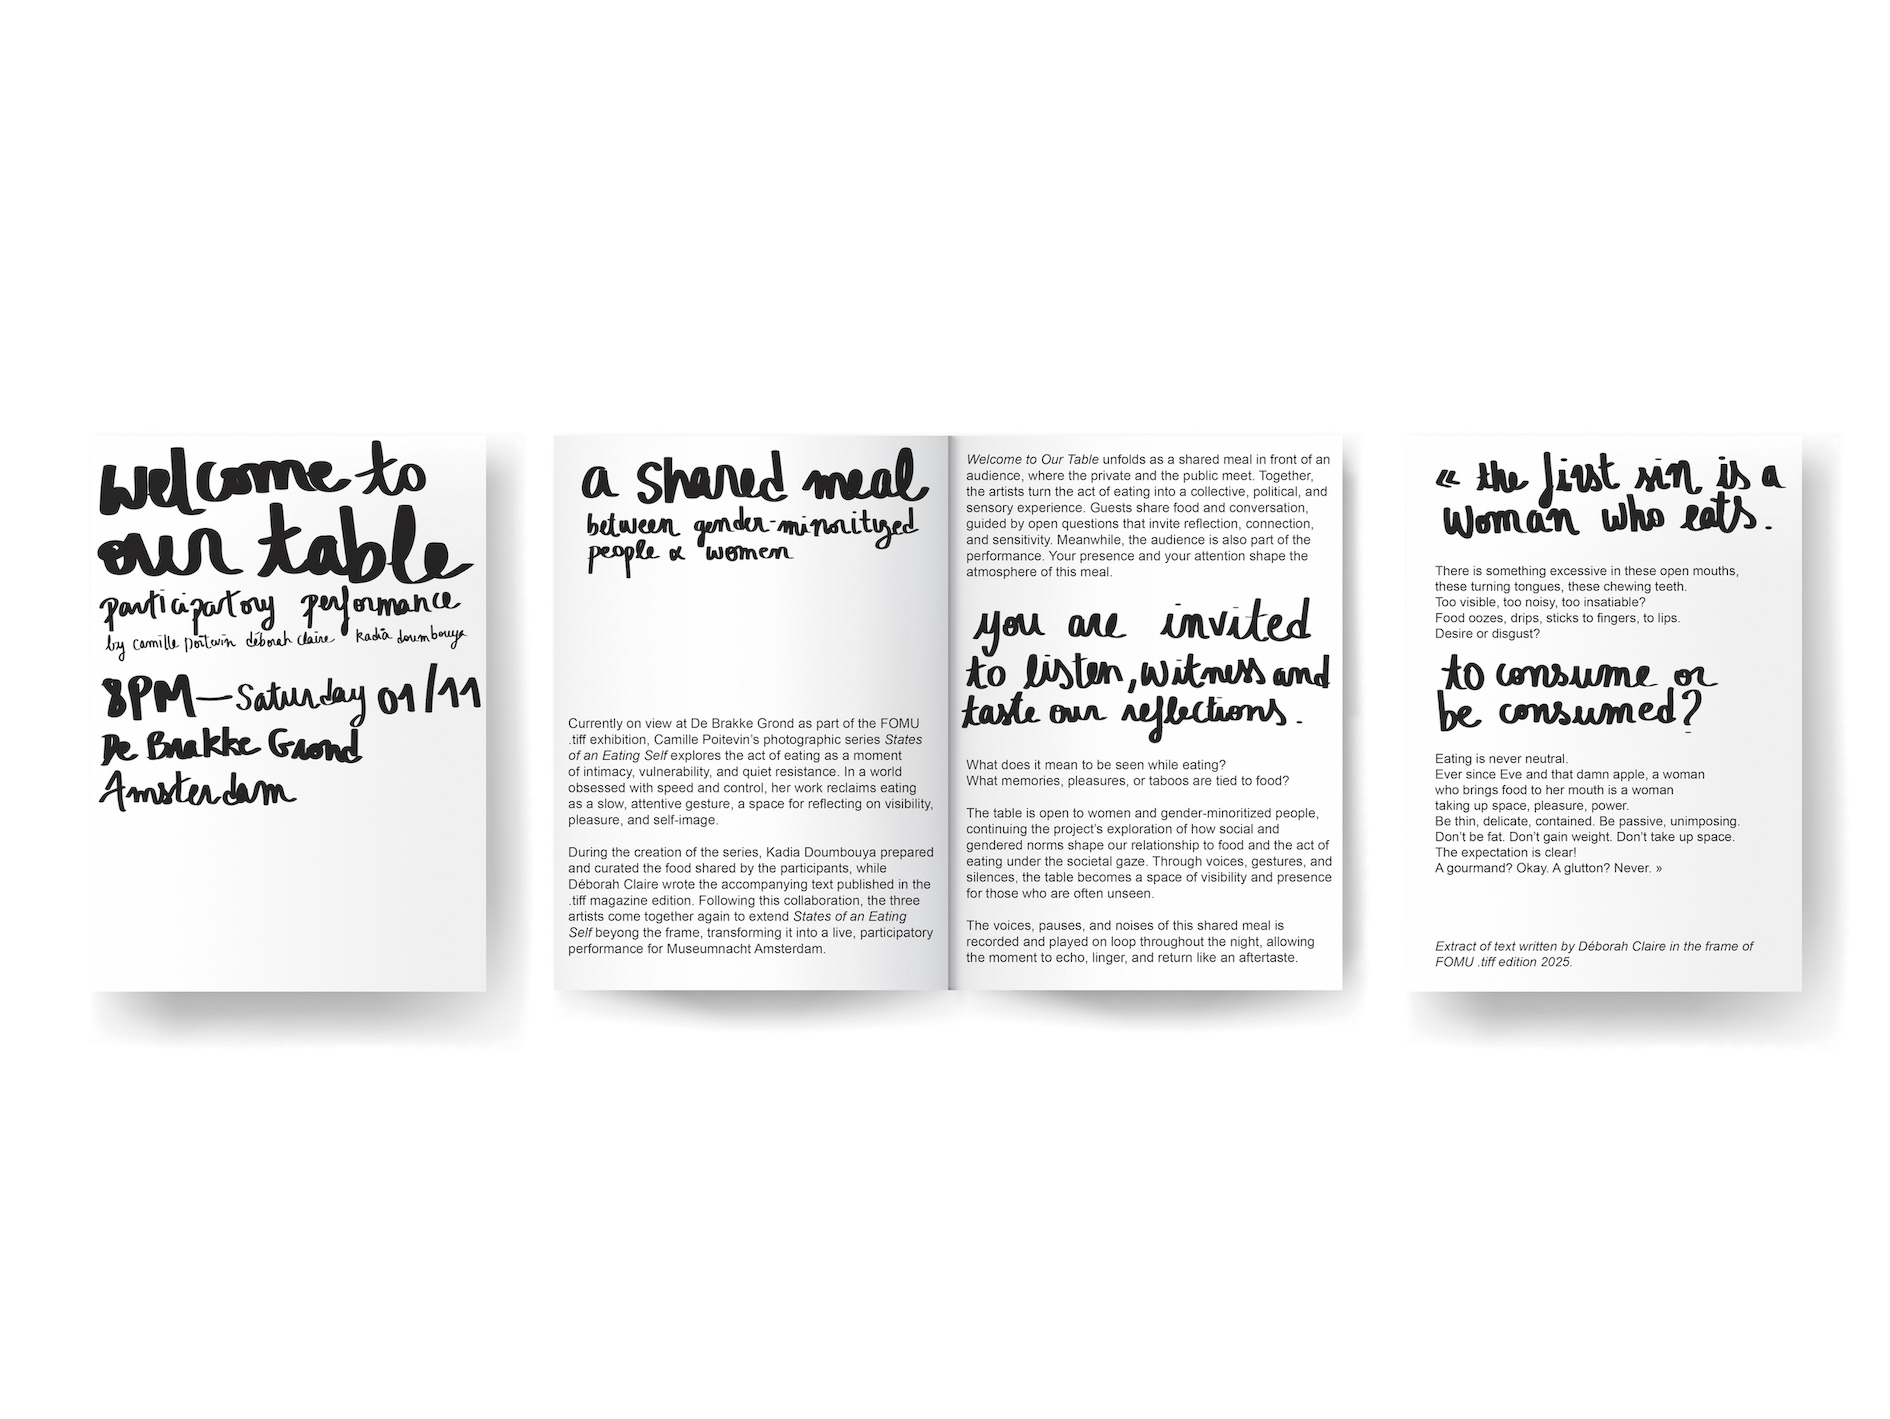 welcome to
our table
participatory performance
by camille poitevin déborah claire kadia doumbouya
8PM — Saturday 01/11
De Brakke Grond
Amsterdam
a shared meal
between gender-minoritized
people & women
Currently on view at De Brakke Grond as part of the FOMU
.tiff exhibition, Camille Poitevin's photographic series States
of an Eating Self explores the act of eating as a moment
of intimacy, vulnerability, and quiet resistance. In a world
obsessed with speed and control, her work reclaims eating
as a slow, attentive gesture, a space for reflecting on visibility,
pleasure, and self-image.
During the creation of the series, Kadia Doumbouya prepared
and curated the food shared by the participants, while
Déborah Claire wrote the accompanying text published in the
.tiff magazine edition. Following this collaboration, the three
artists come together again to extend States of an Eating
Self beyong the frame, transforming it into a live, participatory
performance for Museumnacht Amsterdam.
Welcome to Our Table unfolds as a shared meal in front of an
audience, where the private and the public meet. Together,
the artists turn the act of eating into a collective, political, and
sensory experience. Guests share food and conversation,
guided by open questions that invite reflection, connection,
and sensitivity. Meanwhile, the audience is also part of the
performance. Your presence and your attention shape the
atmosphere of this meal.
you are invited
to listen, witness and
taste our reflections.
What does it mean to be seen while eating?
What memories, pleasures, or taboos are tied to food?
The table is open to women and gender-minoritized people,
continuing the project's exploration of how social and
gendered norms shape our relationship to food and the act of
eating under the societal gaze. Through voices, gestures, and
silences, the table becomes a space of visibility and presence
for those who are often unseen.
The voices, pauses, and noises of this shared meal is
recorded and played on loop throughout the night, allowing
the moment to echo, linger, and return like an aftertaste.
« the first sin is a
woman who eats.
There is something excessive in these open mouths,
these turning tongues, these chewing teeth.
Too visible, too noisy, too insatiable?
Food oozes, drips, sticks to fingers, to lips.
Desire or disgust?
to consume or
be consumed?
Eating is never neutral.
Ever since Eve and that damn apple, a woman
who brings food to her mouth is a woman
taking up space, pleasure, power.
Be thin, delicate, contained. Be passive, unimposing.
Don't be fat. Don't gain weight. Don't take up space.
The expectation is clear!
A gourmand? Okay. A glutton? Never. »
Extract of text written by Déborah Claire in the frame of
FOMU .tiff edition 2025.